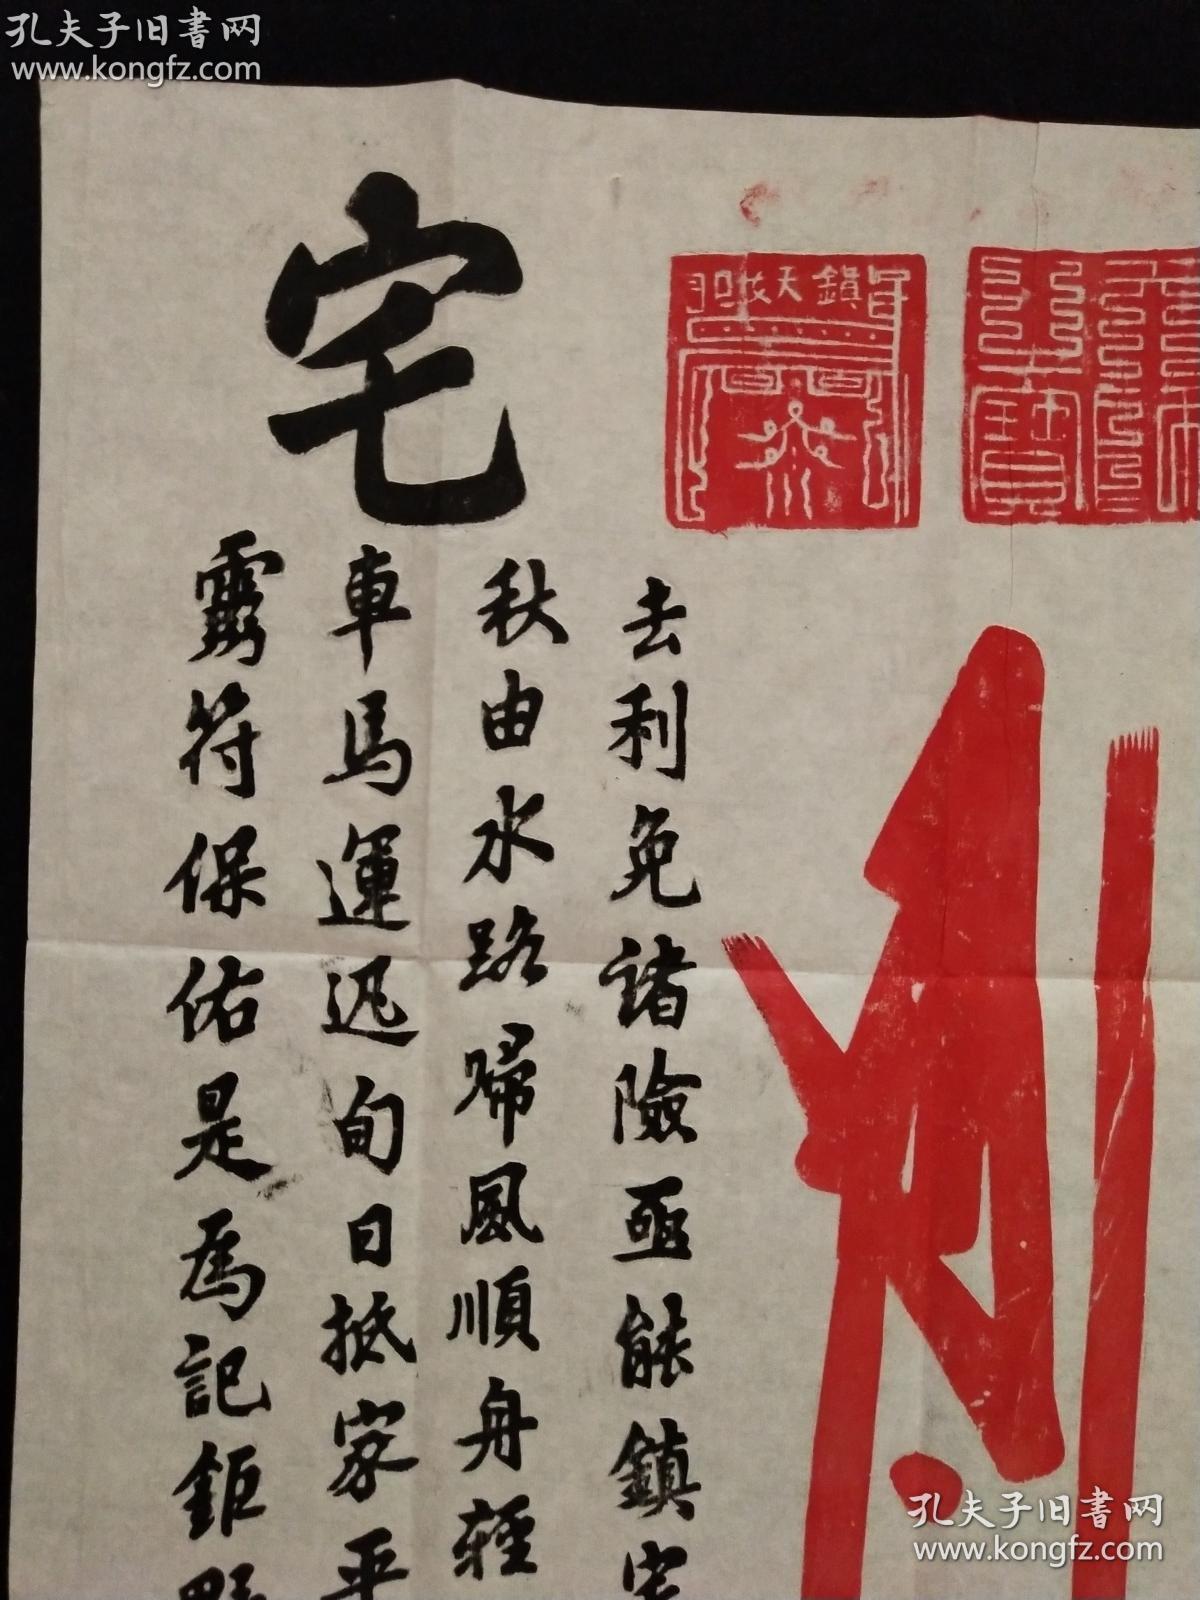 孔夫子旧書网
www.kongfz.com
去利免諸險亟能鎮宅
秋由水路歸風順舟輕
車馬運迅旬日抵家平
靈符保佑是為記鉅野
宅
孔夫子旧書网
www.kongfz.com